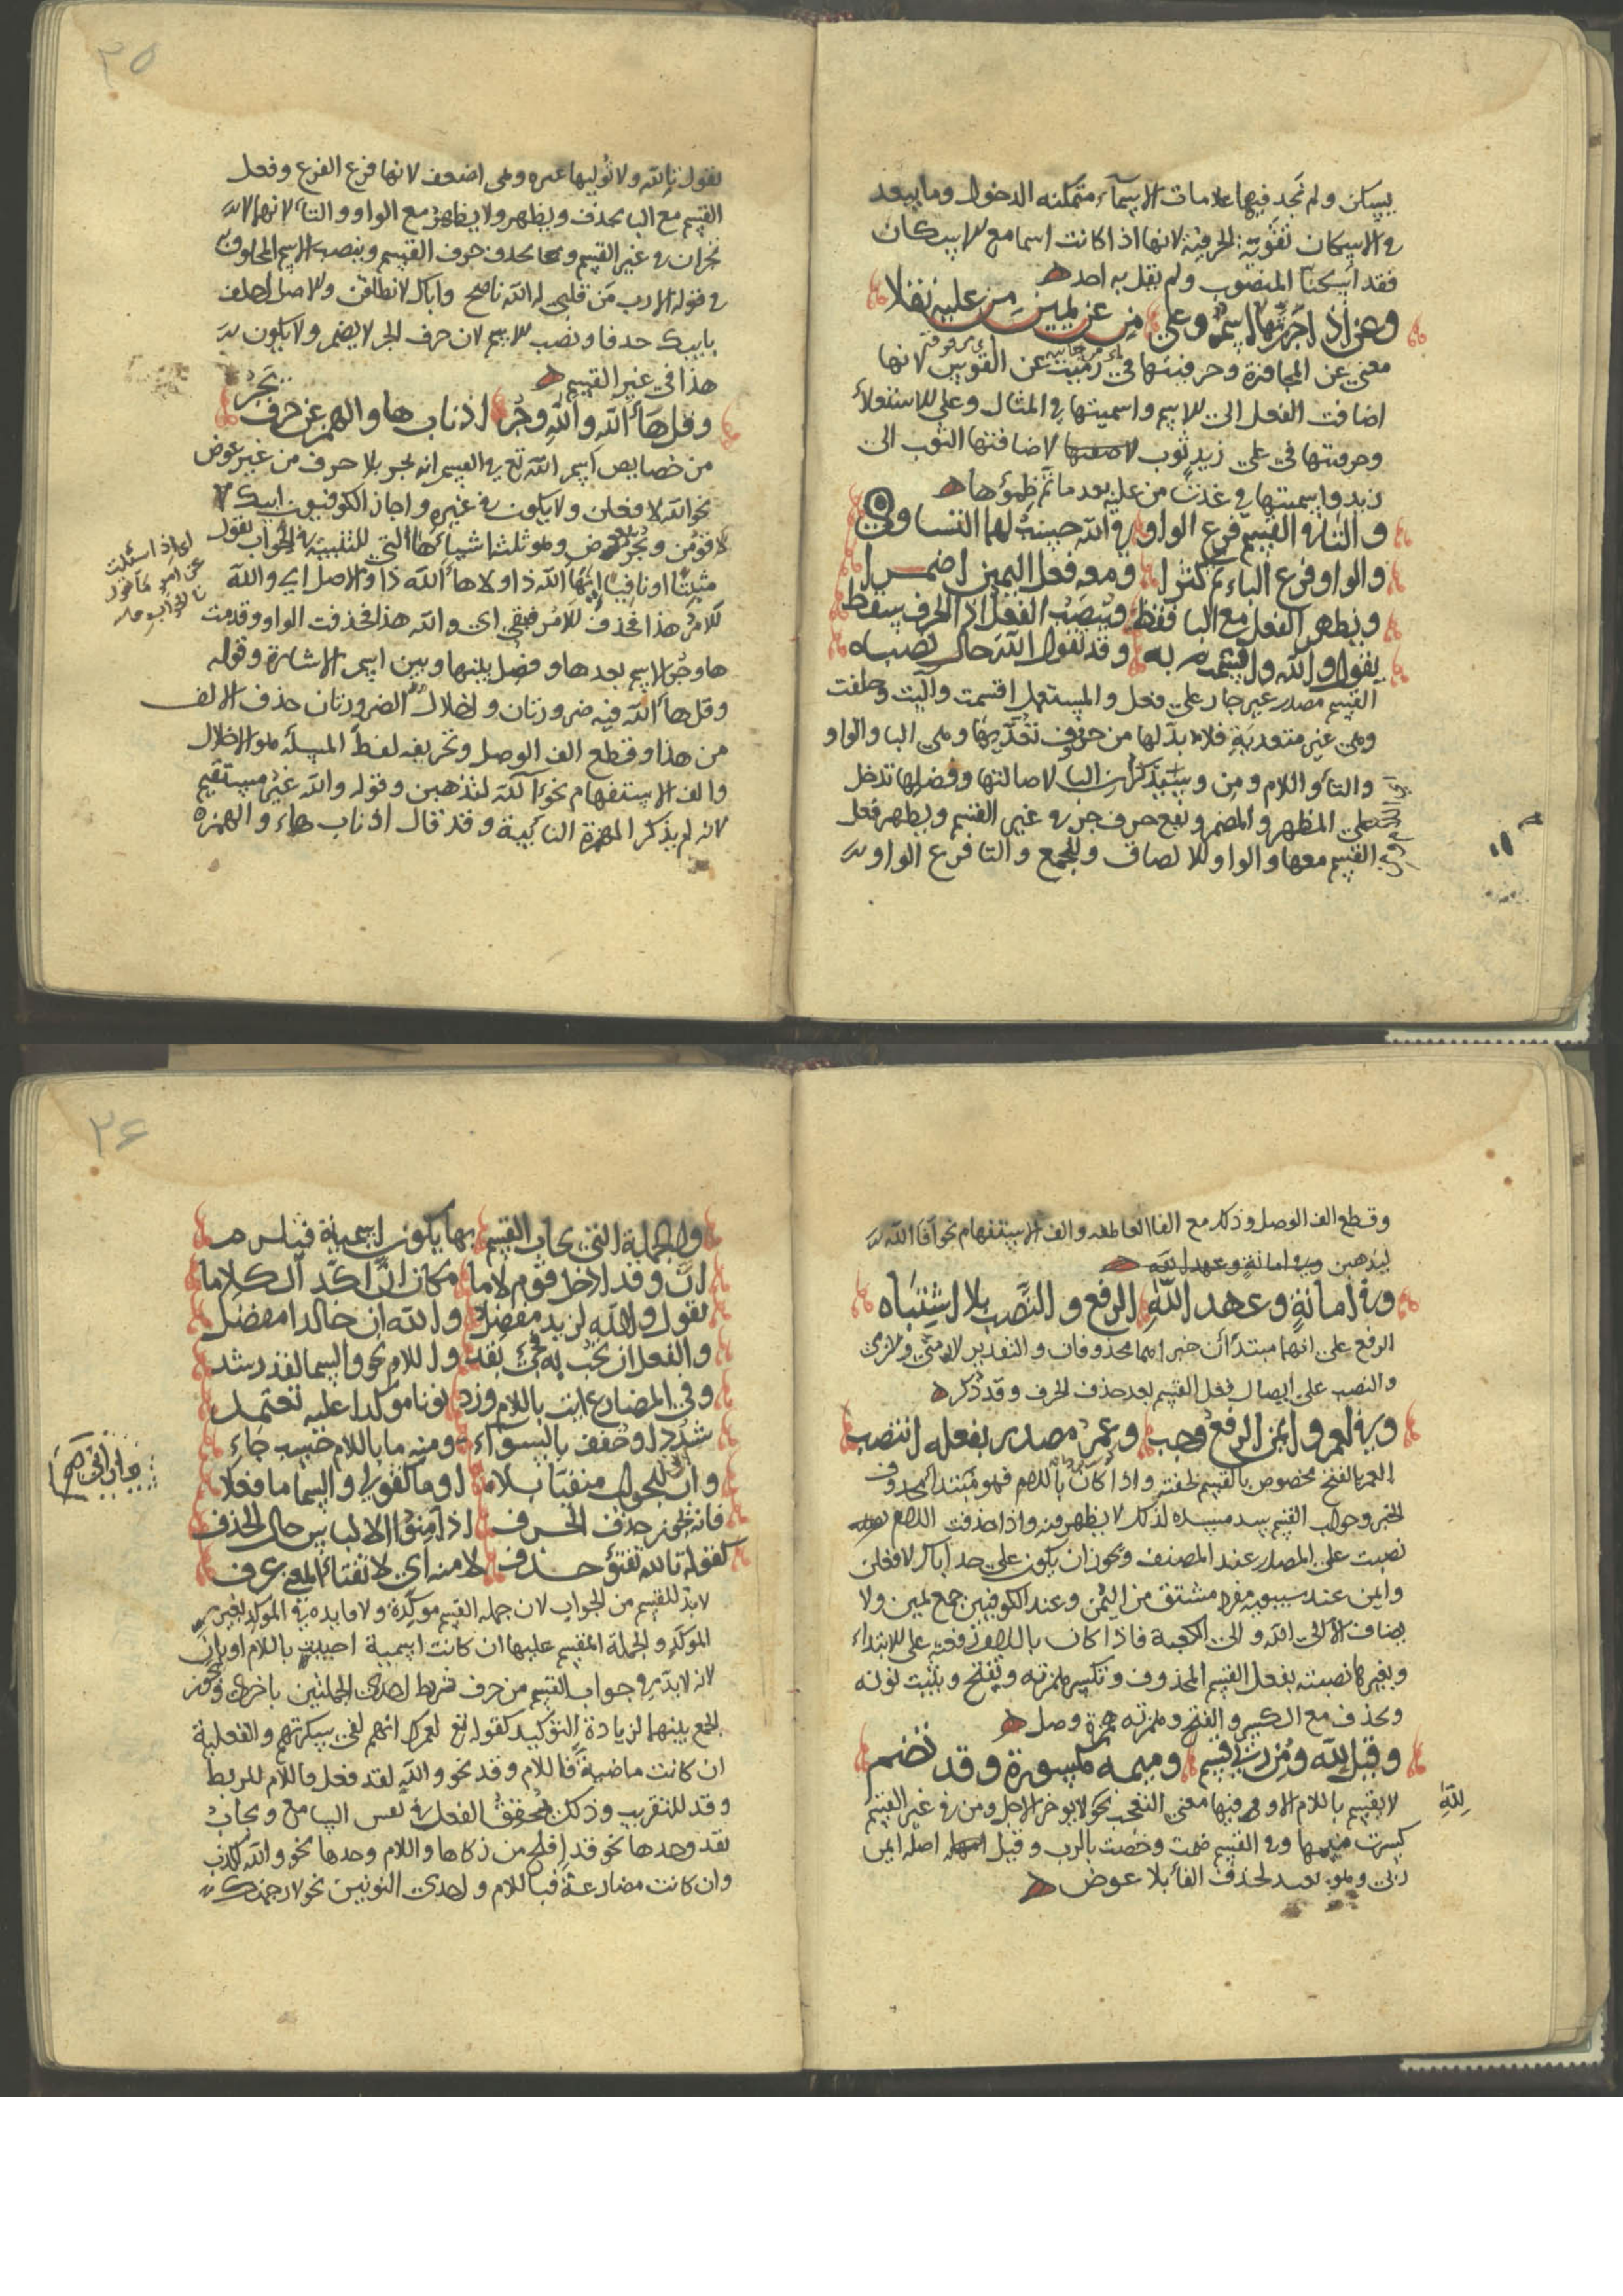 يسكن ولم نجد فيها علامات الاسماء متمكنه الدخول وما بعد
في الاسكان تقوية الحرفية لانها اذا كانت اسما مع الاسكان
فقد اسكنا المنصوب ولم يقل به احد
وعن اذا جررتها اسم وعلى من عن يمين من عليه نقلا
معنى عن المجاوزة وحرفيتها في رميت عن القوس لانها
اضافت الفعل الى الاسم واسميتها في المثال وعلى للاستعلاء
وحرفيتها في على زيد ثوب لاضافتها الثوب الى
زيد واسميتها في غدت من عليه بعد ما تم ظمؤها
والتاء في القسم فرع الواو في الله حسبة لهما التساوي
والواو فرع الباء ثم كثرا ومعه فعل اليمين اضمرا
ويظهر الفعل مع البا فقط وينصب الفعل اذا الحرف سقط
يقول والله واقسم به وقد تقول الله حال نصبه
القسم مصدر غير جار على فعل والمستعمل اقسمت وآليت وحلفت
وهي غير متعدية فلا بد لها من حروف تعديها وهي البا والواو
والتا واللام ومن وسنذكر ان البا لاصالتها وفضلها تدخل
على المظهر والمضمر وتقع حرف جر في غير القسم ويظهر فعل
القسم معها والواو للالصاق وللجمع والتا فرع الواو
٢٥
تقول تالله ولا توليها غيره وهي اضعف لانها فرع الفرع وفعل
القسم مع البا يحذف ويظهر ولا يظهر مع الواو والتا لانهما لا
تجران في غير القسم وربما يحذف حرف القسم وينصب الاسم المحلوف به
في قوله الا رب من قلبي له الله ناصح واباك لانطلقن والاصل احلف
بابيك حذفا ونصب الاسم لان حرف الجر لا يضمر ولا يكون
هذا في غير القسم
وقل هاالله والله وجر اذ ناب ها والهمز عن حرف يجر
من خصايص اسم الله تع في القسم انه يجر بلا حرف من غير عوض
نحو الله لافعلن ولا يكون في غيره واجاز الكوفيون ابيك
لاقومن ويجر بعوض وهو ثلثة اشياء ها التي للتنبيه في الجواب تقول
مثبتا او نافيا اي ها الله ذا ولا ها الله ذا والاصل اي والله
للامر هذا فحذف للامر فبقي اي والله هذا فحذفت الواو وقدمت
ها وجر الاسم بعدها وفصل بينها وبين اسم الاشارة وقوله
وقل ها الله فيه ضرورتان واخلال الضرورتان حذف الالف
من هذا وقطع الف الوصل وتحريفه لفظ المسألة هو الاخلال
والف الاستفهام نحو آلله لتذهبن وقوله والله غير مستقيم
لانه لم يذكر الهمزة النائبة وقد قال اذ ناب هاء والهمزه
اي اذا سئلت
عن امر
وقطع الف الوصل وذلك مع الفا العاطفه والف الاستفهام نحو أفا الله
ليذهبن وفي امانة وعهد الله
وفي امانة وعهد الله الرفع والنصب بلا اشتباه
الرفع على انهما مبتدآن خبراهما محذوفان والتقدير
والنصب على ايصال فعل القسم بعد حذف الحرف وقد ذكر
وفي لعمر وايمن الرفع وجب وعمر مصدر بفعله انتصب
العمر بالفتح مخصوص بالقسم لخفته واذا كان باللام فهو مبتدا محذوف
الخبر وجواب القسم يسد مسده لذلك لا يظهر فيه واذا حذفت اللام
نصبت على المصدر عند المصنف ويجوز ان يكون على حد اباك لافعلن
وايمن عند سيبويه مفرد مشتق من اليمن وعند الكوفيين جمع يمين ولا
يضاف الا الى الله والى الكعبة فاذا كان باللام رفعته على الابتداء
وبغيرها نصبته بفعل القسم المحذوف وتكسر همزته وتفتح وتثبت نونه
وتحذف مع الكسر والفتح وهمزته همزة وصل
وقيل لله ومن رب في قسم وميمه مكسورة وقد تضم
لا يقسم باللام الا وفيها معنى التعجب نحو لا يؤخر الاجل ومن في غير القسم
كسرت ميمها وفي القسم ضمت وخصت بالرب وقيل اصله ايمن
ربي وهو بعيد لحذف الفا بلا عوض
لله
٢٦
والجملة التي يجاب القسم بها يكون اسمية فيلزم
ان وقد ادخل قوم لاما مكان ان اكد الكلاما
تقول والله لزيد مفضل والله ان خالدا مفضل
والفعل ان تجب به فجئ بقد واللام نحو والسما لقد رشد
وفي المضارع ايت باللام وزد نونا مؤكدا عليه تعتمد
شدد او خفف بالسواء ومنه ما باللام حسب جاء
وان يجي الجواب منفيا بلا او ما كقولي والسما ما فعلا
فانه يجوز حذف الحرف اذا امنوا الالباس حال الحذف
كقوله تالله تفتؤ حذف لا منه اي لا تفتا المعنى عرف
لا بد للقسم من الجواب لان جمله القسم موكدة ولا فايده في الموكد بغير
الموكد والجملة المقسم عليها ان كانت اسمية اجيبت باللام او بان
لانه لا بد في جواب القسم من حرف يربط احدى الجملتين باخرى ويجوز
الجمع بينهما لزيادة التوكيد كقوله تع لعمرك انهم لفي سكرتهم والفعلية
ان كانت ماضية فاللام وقد نحو والله لقد فعل فاللام للربط
وقد للتقريب وذلك يحقق الفعل في نفس السامع ويجاب
بقد وحدها نحو قد افلح من زكاها واللام وحدها نحو والله لكذب
وان كانت مضارعة فباللام واحدى النونين نحو لارجمنك